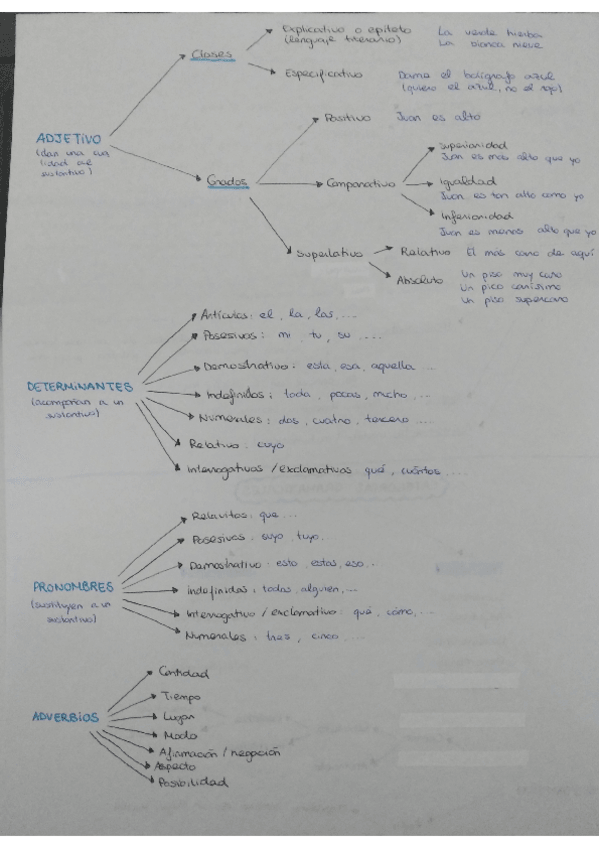 Explicativo o epíteto La verde hierba
(lenguaje literario) La blanca nieve
Clases
Especificativo Dame el bolígrafo azul
(quiero el azul, no el rojo)
Positivo Juan es alto
ADJETIVO
(dan una cualidad al
sustantivo)
Superioridad
Juan es más alto que yo
Grados
Comparativo Igualdad
Juan es tan alto como yo
Inferioridad
Juan es menos alto que yo
Superlativo Relativo El más caro de aquí
Absoluto Un piso muy caro
Un pico carísimo
Un piso supercaro
Artículos: el, la, las, ...
Posesivos: mi, tu, su ....
Demostrativo: esta, esa, aquella ...
DETERMINANTES
(acompañan a un
sustantivo)
Indefinidos: toda, pocas, mucho ...
Numerales: dos, cuatro, tercero ...
Relativo: cuyo
Interrogativos / exclamativos qué, cuántos, ....
Relavitos: que ...
Posesivos: suyo, tuyo.
Demostrativo: esto, estas, eso ...
PRONOMBRES
(sustituyen a un
sustantivo)
Indefinidas: todas, alguien, ...
Interrogativo / exclamativo: qué, cómo, ...
Numerales: tres, cinco ....
Cantidad
Tiempo
ADVERBIOS
Lugar
Modo
Afirmación / negación
Aspecto
Posibilidad